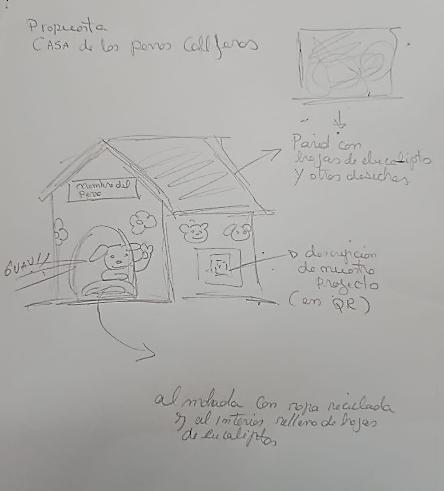 Propuesta
CASA de los perros Callejeros
Pared con
hojas de eucalipto
y otros desechos
nombre del
perro
GUAU!!
descripción
de nuestro
proyecto
(en QR)
almohada con ropa reciclada
y al interior relleno de hojas
de eucaliptos